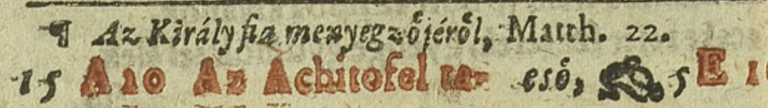 ¶ Az Király fia menyegzőjéről, Matth. 22.
15 A 10 Az Achitofel ta- eső, 5 E 1